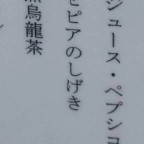 ジュース・ペプシコ
セピアのしげき
黒烏龍茶